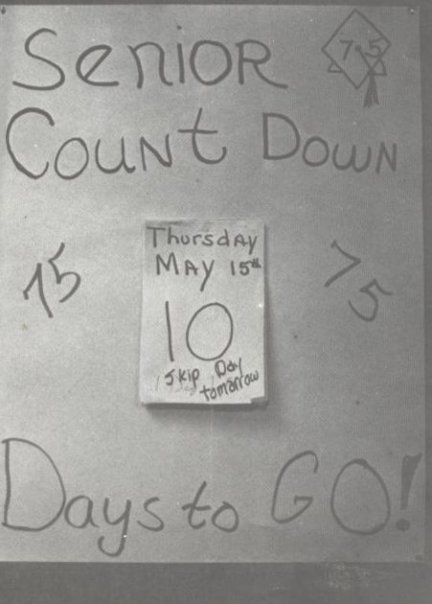 Senior 7.5
Count Down
75
75
Thursday
May 15th
10
Skip Day
tomarrow
Days to GO!